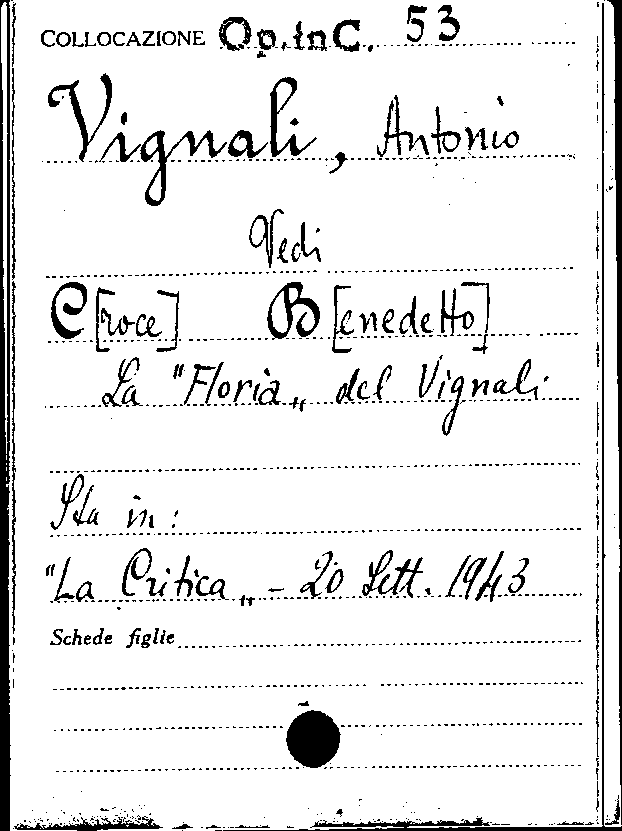 COLLOCAZIONE Op. in C. 53
Vignali, Antonio
Vedi
C[roce] B[enedetto]
La "Floria„ del Vignali
Sta in:
"La Critica„ - 20 Sett. 1943
Schede figlie